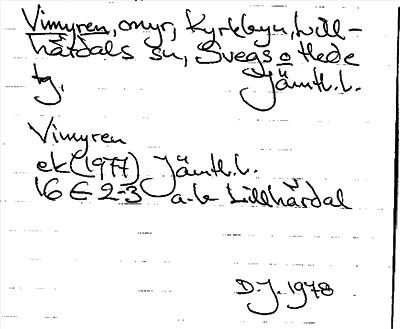 Vimyren, omyr, Kyrkbyn, Lill-
härdals sn, Svegs o Hede
tg. Jämtl. l.
Vimyren
ek (1977) Jämtl. l.
16 E 2-3 a-b Lillhärdal
D.J. 1978